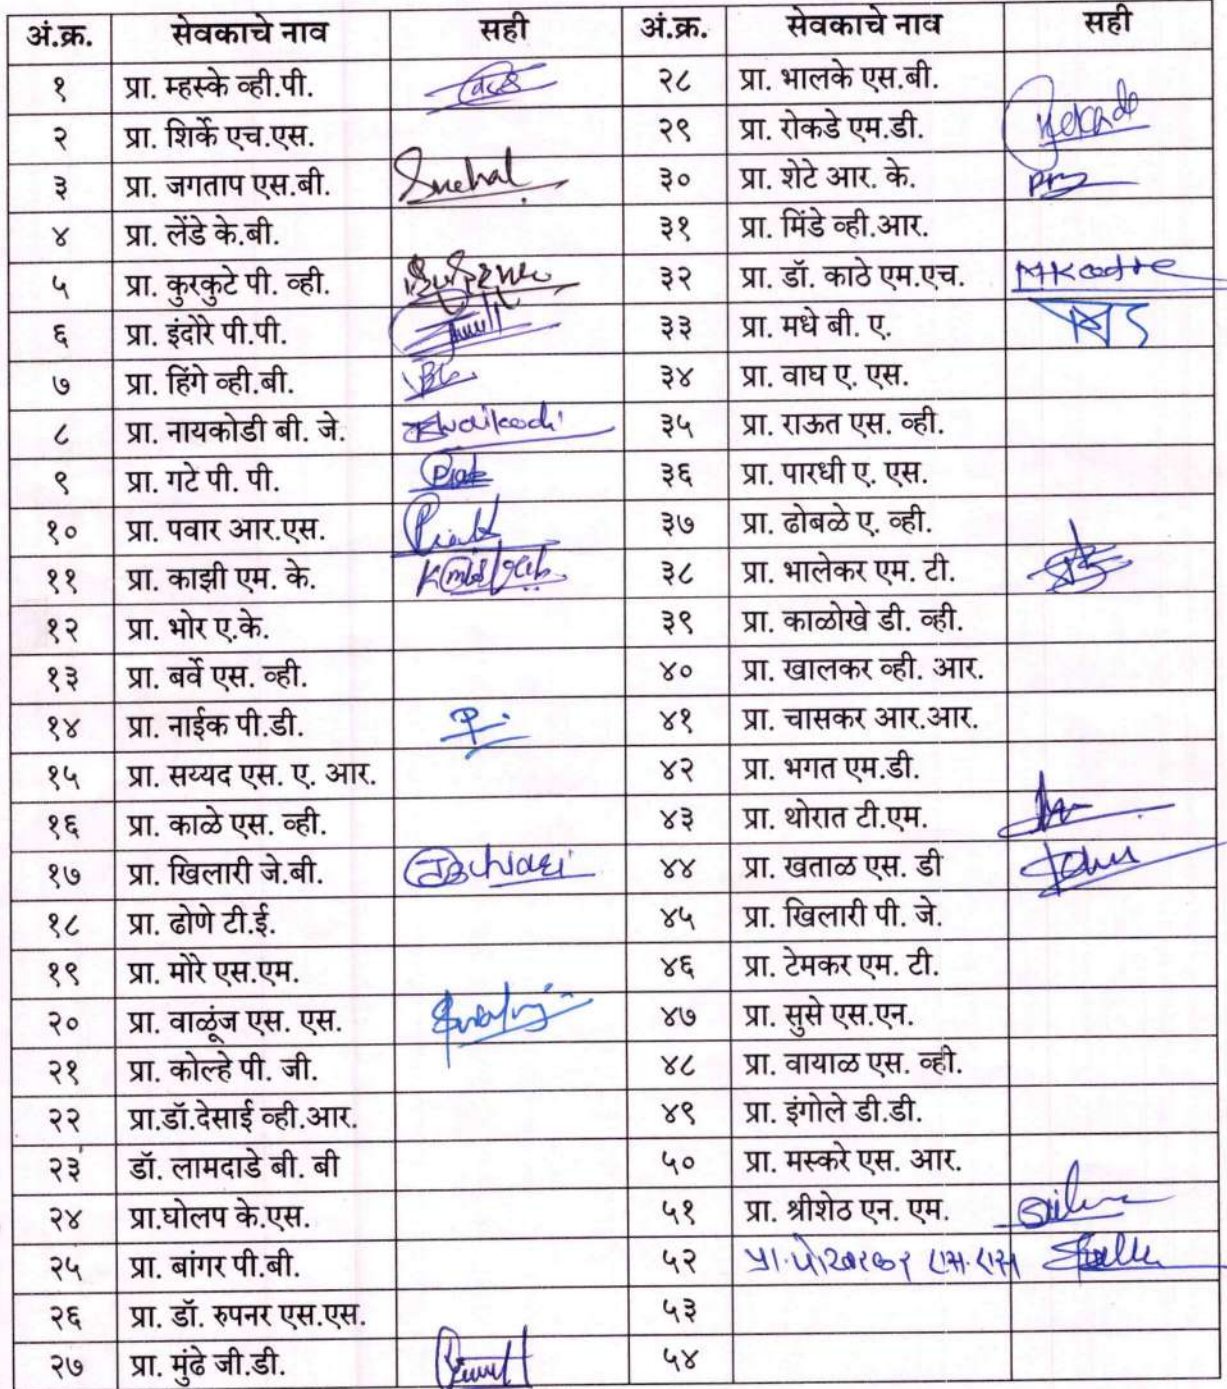 अं.क्र. सेवकाचे नाव सही अं.क्र. सेवकाचे नाव सही
१ प्रा. म्हस्के व्ही.पी. २८ प्रा. भालके एस.बी.
२ प्रा. शिर्के एच.एस. २९ प्रा. रोकडे एम.डी.
३ प्रा. जगताप एस.बी. Snehal ३० प्रा. शेटे आर. के.
४ प्रा. लेंडे के.बी. ३१ प्रा. मिंडे व्ही.आर.
५ प्रा. कुरकुटे पी. व्ही. ३२ प्रा. डॉ. काठे एम.एच.
६ प्रा. इंदोरे पी.पी. ३३ प्रा. मधे बी. ए.
७ प्रा. हिंगे व्ही.बी. ३४ प्रा. वाघ ए. एस.
८ प्रा. नायकोडी बी. जे. ३५ प्रा. राऊत एस. व्ही.
९ प्रा. गटे पी. पी. ३६ प्रा. पारधी ए. एस.
१० प्रा. पवार आर.एस. ३७ प्रा. ढोबळे ए. व्ही.
११ प्रा. काझी एम. के. ३८ प्रा. भालेकर एम. टी.
१२ प्रा. भोर ए.के. ३९ प्रा. काळोखे डी. व्ही.
१३ प्रा. बर्वे एस. व्ही. ४० प्रा. खालकर व्ही. आर.
१४ प्रा. नाईक पी.डी. ४१ प्रा. चासकर आर.आर.
१५ प्रा. सय्यद एस. ए. आर. ४२ प्रा. भगत एम.डी.
१६ प्रा. काळे एस. व्ही. ४३ प्रा. थोरात टी.एम.
१७ प्रा. खिलारी जे.बी. ४४ प्रा. खताळ एस. डी
१८ प्रा. ढोणे टी.ई. ४५ प्रा. खिलारी पी. जे.
१९ प्रा. मोरे एस.एम. ४६ प्रा. टेमकर एम. टी.
२० प्रा. वाळूंज एस. एस. ४७ प्रा. सुसे एस.एन.
२१ प्रा. कोल्हे पी. जी. ४८ प्रा. वायाळ एस. व्ही.
२२ प्रा.डॉ.देसाई व्ही.आर. ४९ प्रा. इंगोले डी.डी.
२३ डॉ. लामदाडे बी. बी ५० प्रा. मस्करे एस. आर.
२४ प्रा.घोलप के.एस. ५१ प्रा. श्रीशेठ एन. एम.
२५ प्रा. बांगर पी.बी. ५२ प्रा. पोखरकर एस. एस
२६ प्रा. डॉ. रुपनर एस.एस. ५३
२७ प्रा. मुंढे जी.डी. ५४